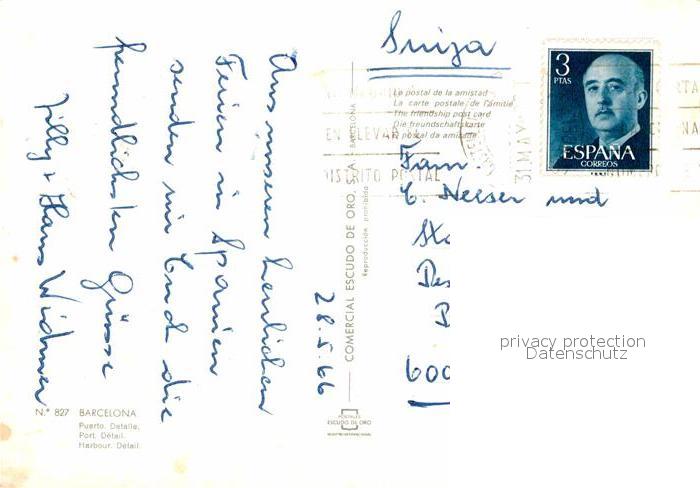 Aus unseren herrlichen
Ferien in Spanien
senden wir Euch die
freundlichsten Grüsse
Hans Widmer
28.5.66
Nº 827 BARCELONA
Puerto. Detalle.
Port. Détail.
Harbour. Detail.
COMERCIAL ESCUDO DE ORO, S.A. - BARCELONA
Reproducción prohibida
POSTALES
ESCUDO DE ORO
Suiza
La postal de la amistad
La carte postale de l'amitié
The friendship post card
Die freundschaftskarte
A postal da amizade
3
PTAS
ESPAÑA
CORREOS
31 MAY
EN
LLEVARA
DISTRITO POSTAL
Fam.
und
600
privacy protection
Datenschutz